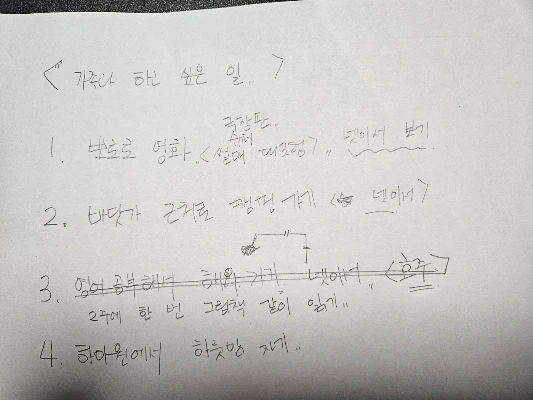 < 가족과 하고 싶은 일.. >
극장판..
슈퍼
1. 뽀로로 영화.. <썰매 대모험>.. 넷이서 보기
2. 바닷가 근처로 캠핑 가기 (넷이서)
3. 영어 공부해서 해외 가기 넷이서.. <호주>
2주에 한 번 그림책 같이 읽기..
4. 한아원에서 하룻밤 자기..